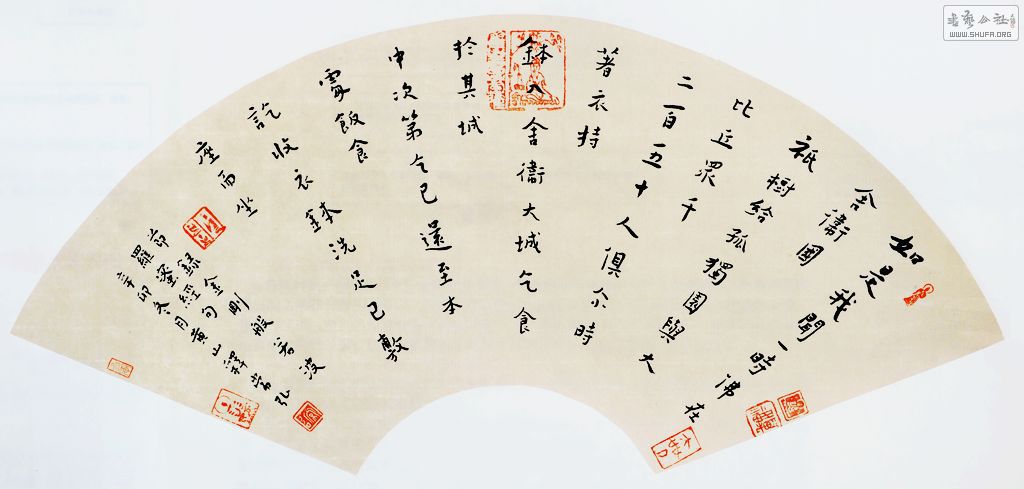 如是我聞一時佛在
舍衛國
祇樹給孤獨園與大
比丘眾千
二百五十人俱尔時
著衣持
鉢入舍衛大城乞食
於其城
中次第乞已還至本
處飯食
訖收衣鉢洗足已敷
座而坐
節錄金剛般若波
羅蜜經句
辛卯冬月黄山釋常弘
書藝公社
WWW.SHUFA.ORG